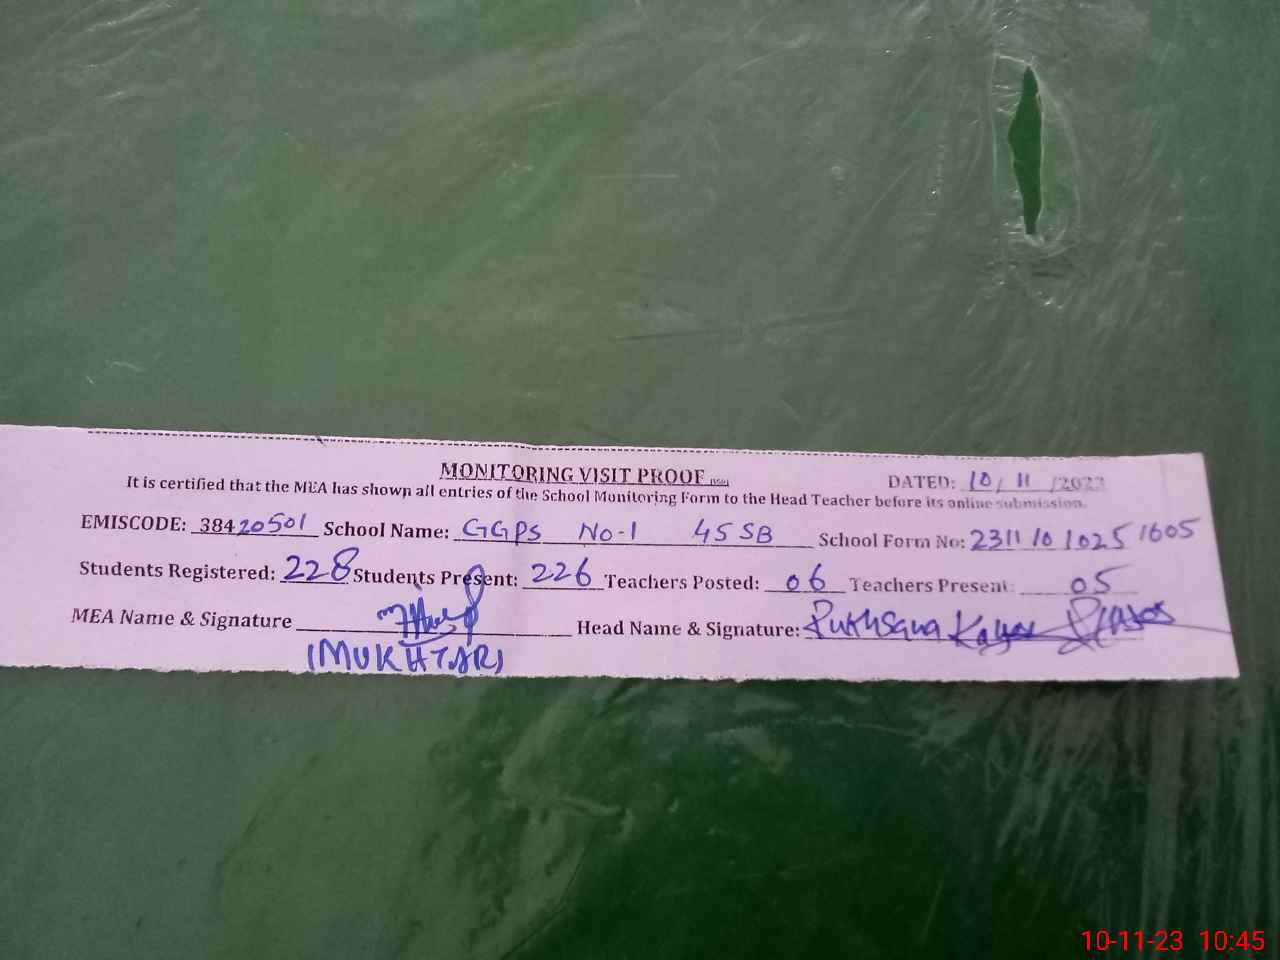 MONITORING VISIT PROOF
DATED: 10/ 11 /2023
It is certified that the MEA has shown all entries of the School Monitoring Form to the Head Teacher before its online submission.
EMISCODE: 38420501 School Name: GGPS No-1 45 SB School Form No: 2311 10 1025 1605
Students Registered: 228 Students Present: 226 Teachers Posted: 06 Teachers Present: 05
MEA Name & Signature Head Name & Signature:
(MUKHTAR)
10-11-23 10:45